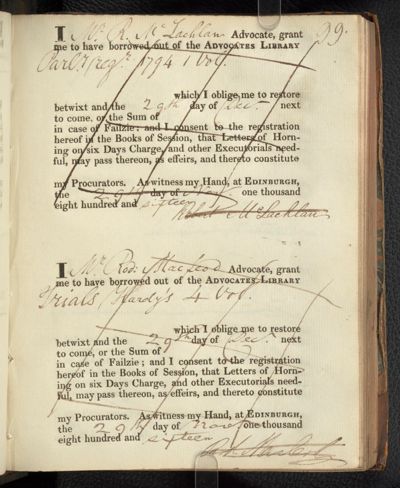 99.
I Mr. R. McLachlan Advocate, grant
me to have borrowed out of the ADVOCATES LIBRARY
Parly. regr. 1794 1 Vol.
which I oblige me to restore
betwixt and the 29th day of Decr. next
to come, or the Sum of
in case of Failzie; and I consent to the registration
hereof in the Books of Session, that Letters of Horn-
ing on six Days Charge, and other Executorials need-
ful, may pass thereon, as effeirs, and thereto constitute
my Procurators. As witness my Hand, at EDINBURGH,
the 29th day of Novr one thousand
eight hundred and sixteen
Robert McLachlan
I Mr. Rod: Macleod Advocate, grant
me to have borrowed out of the ADVOCATES LIBRARY
Trials Hardy's 4 Vol.
which I oblige me to restore
betwixt and the 29th day of Decr. next
to come, or the Sum of
in case of Failzie; and I consent to the registration
hereof in the Books of Session, that Letters of Horn-
ing on six Days Charge, and other Executorials need-
ful, may pass thereon, as effeirs, and thereto constitute
my Procurators. As witness my Hand, at EDINBURGH,
the 29th day of Novr one thousand
eight hundred and sixteen